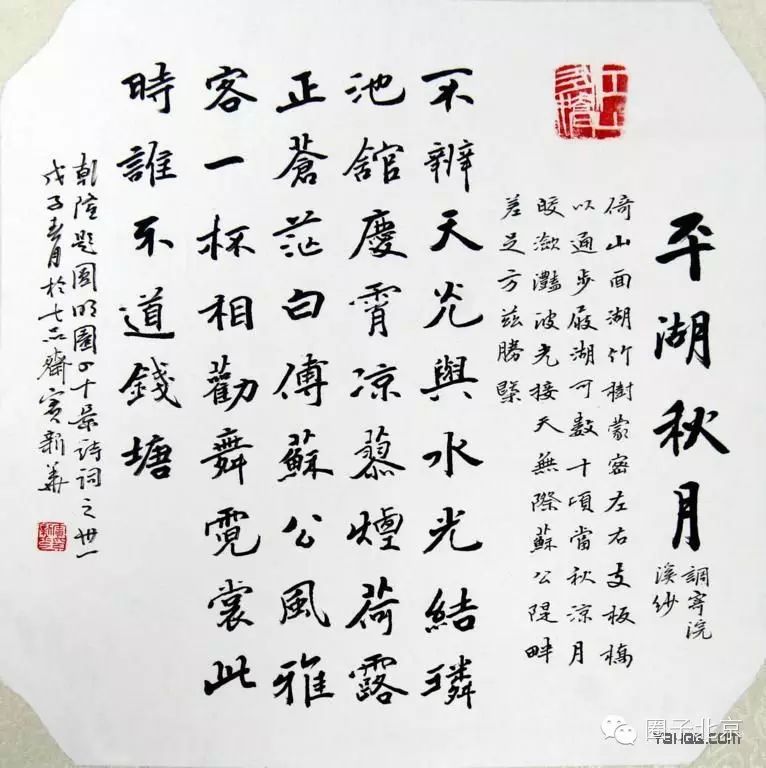 江山
多嬌
平湖秋月
調寄浣
溪紗
倚山面湖竹樹蒙密左右支板橋
以通步屧湖可數十頃當秋涼月
皎瀲灧波光接天無際蘇公隄畔
差足方茲勝槩
不辨天光與水光結璘
池館慶霄凉蓼煙荷露
正蒼茫白傅蘇公風雅
客一杯相勸舞霓裳此
時誰不道錢塘
乾隆題圓明園四十景詩詞之卅一
戊子春月於七品齋新華
圈子北京